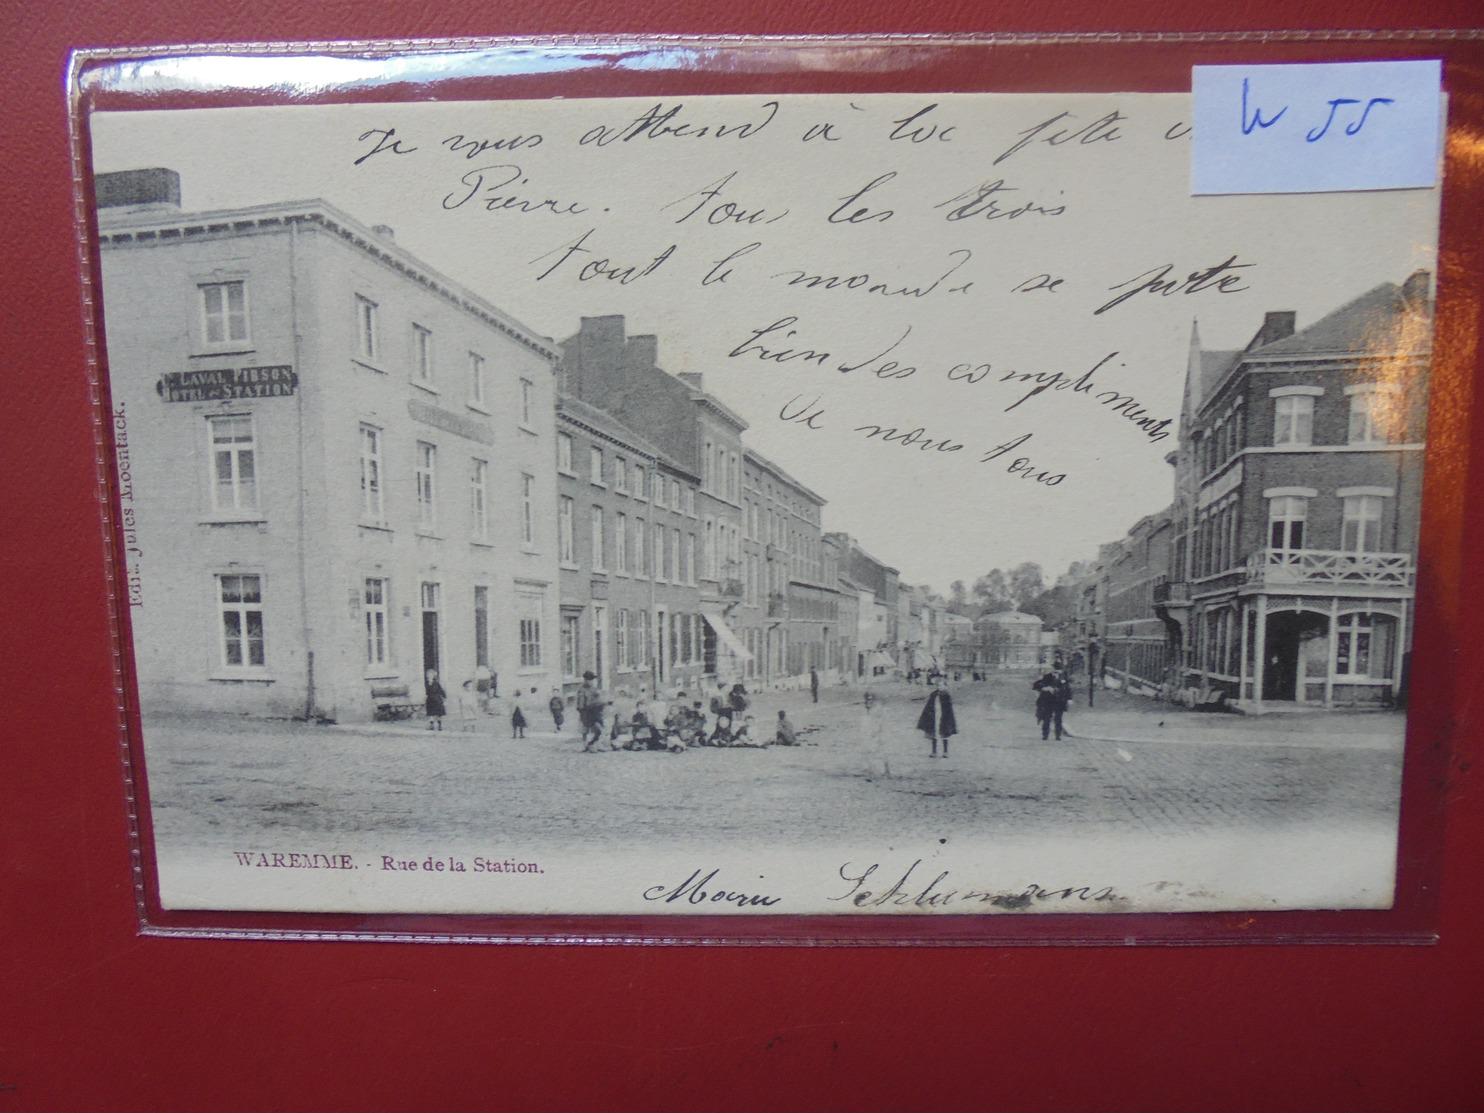 Je vous attend à la fete
W 55
Pierre. tous les trois
tout le monde se pute
bien des compliments
De nous tous
LAVAL PIRSON
HOTEL DE STATION
Edit. Jules Moentack.
WAREMME. - Rue de la Station.
Marie Schlusmans